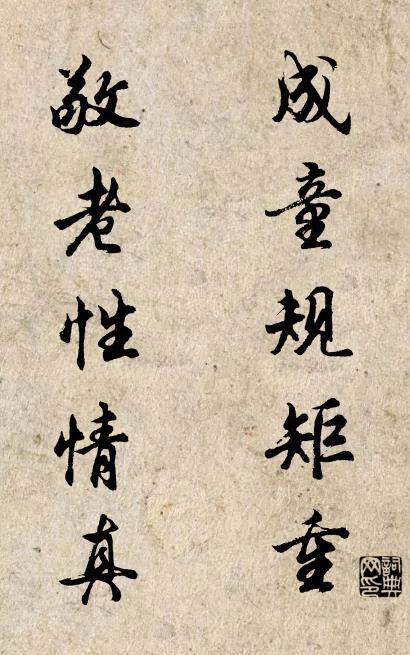 成童规矩重
敬老性情真
詞典网印